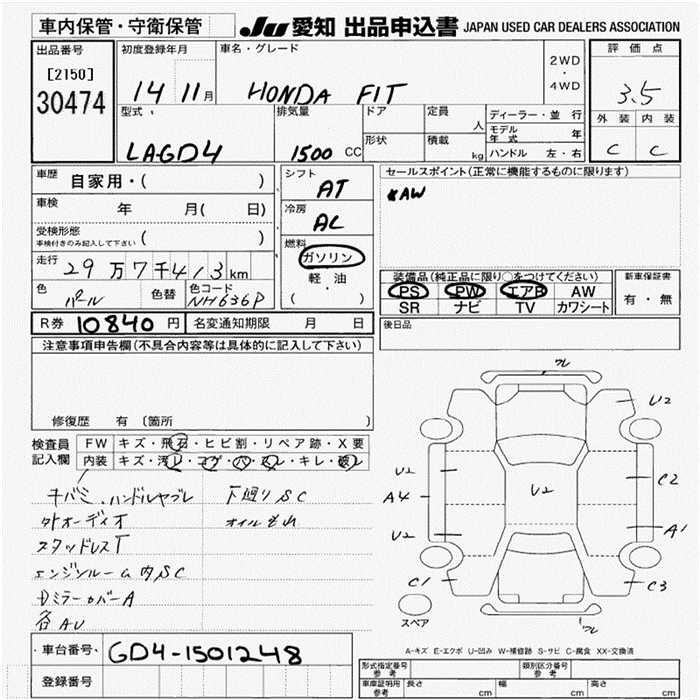 車内保管・守衛保管 JU 愛知 出品申込書 JAPAN USED CAR DEALERS ASSOCIATION
出品番号 初度登録年月 車名・グレード 2WD・4WD 評価点
[2150]
30474
14 11月 HONDA FIT 3.5
型式 排気量 ドア 定員 人 ディーラー・並行 外装 内装
形状 積載 kg モデル年式 年
LA-GD4 1500 CC ハンドル 左・右 C C
車歴 自家用・( ) シフト AT セールスポイント(正常に機能するものに限ります)
車検 年 月( 日) 冷房 AC AW
受検形態 ( )
車検付きのみ記入して下さい
燃料 ガソリン
走行 29万7千413km 軽・油 装備品(純正品に限り○をつけてください) 新車保証書
色 パール 色替 色コード NH636P ( ) PS PW エアB AW 有・無
SR ナビ TV カワシート
R券 10840円 名変通知期限 月 日 後日品
注意事項申告欄(不具合内容等は具体的に記入して下さい)
修復歴 有 〔箇所 〕
検査員記入欄 FW キズ・飛石・ヒビ割・リペア跡・X要
内装 キズ・汚レ・コゲ・穴・スレ・キレ・破レ
キバミ、ハンドルヤブレ 下廻りSC
外オーディオ オイルもれ
スタッドレスT
エンジンルーム内SC
Dミラーカバー A
各AU
ワレ
U2
U2 C2
A4 U2
U2 A1
C1 C3
スペア ワレ
車台番号 GD4-1501248 A-キズ E-エクボ U-凹み W-補修跡 S-サビ C-腐食 XX-交換済
登録番号 型式指定番号 参考 類別区分番号 参考
車庫証明用 参考 長さ cm 幅 cm 高さ cm